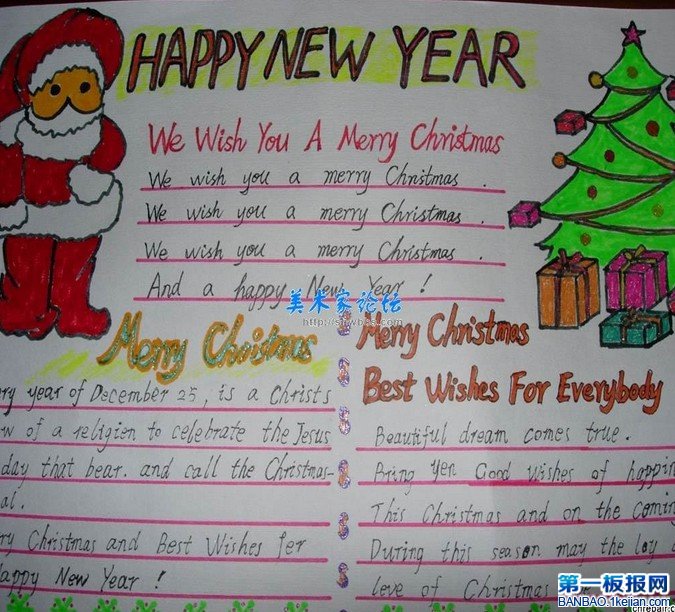 HAPPY NEW YEAR
We Wish You A Merry Christmas
We wish you a merry Christmas .
We wish you a merry Christmas .
We wish you a merry Christmas .
And a happy New Year !
美术家论坛
Merry Christmas
ry year of December 25, is a Christs
w of a religion to celebrate the Jesus
day that bear. and call the Christmas-
al.
ry Christmas and Best Wishes fer
appy New Year !
Merry Christmas
Best Wishes For Everybody
Beautiful dream comes true.
Bring yen Good Wishes of happin
This Christmas and on the comin
During this season may the loy a
leve of Christmas
第一板报网
BANBAO.1kejian.com